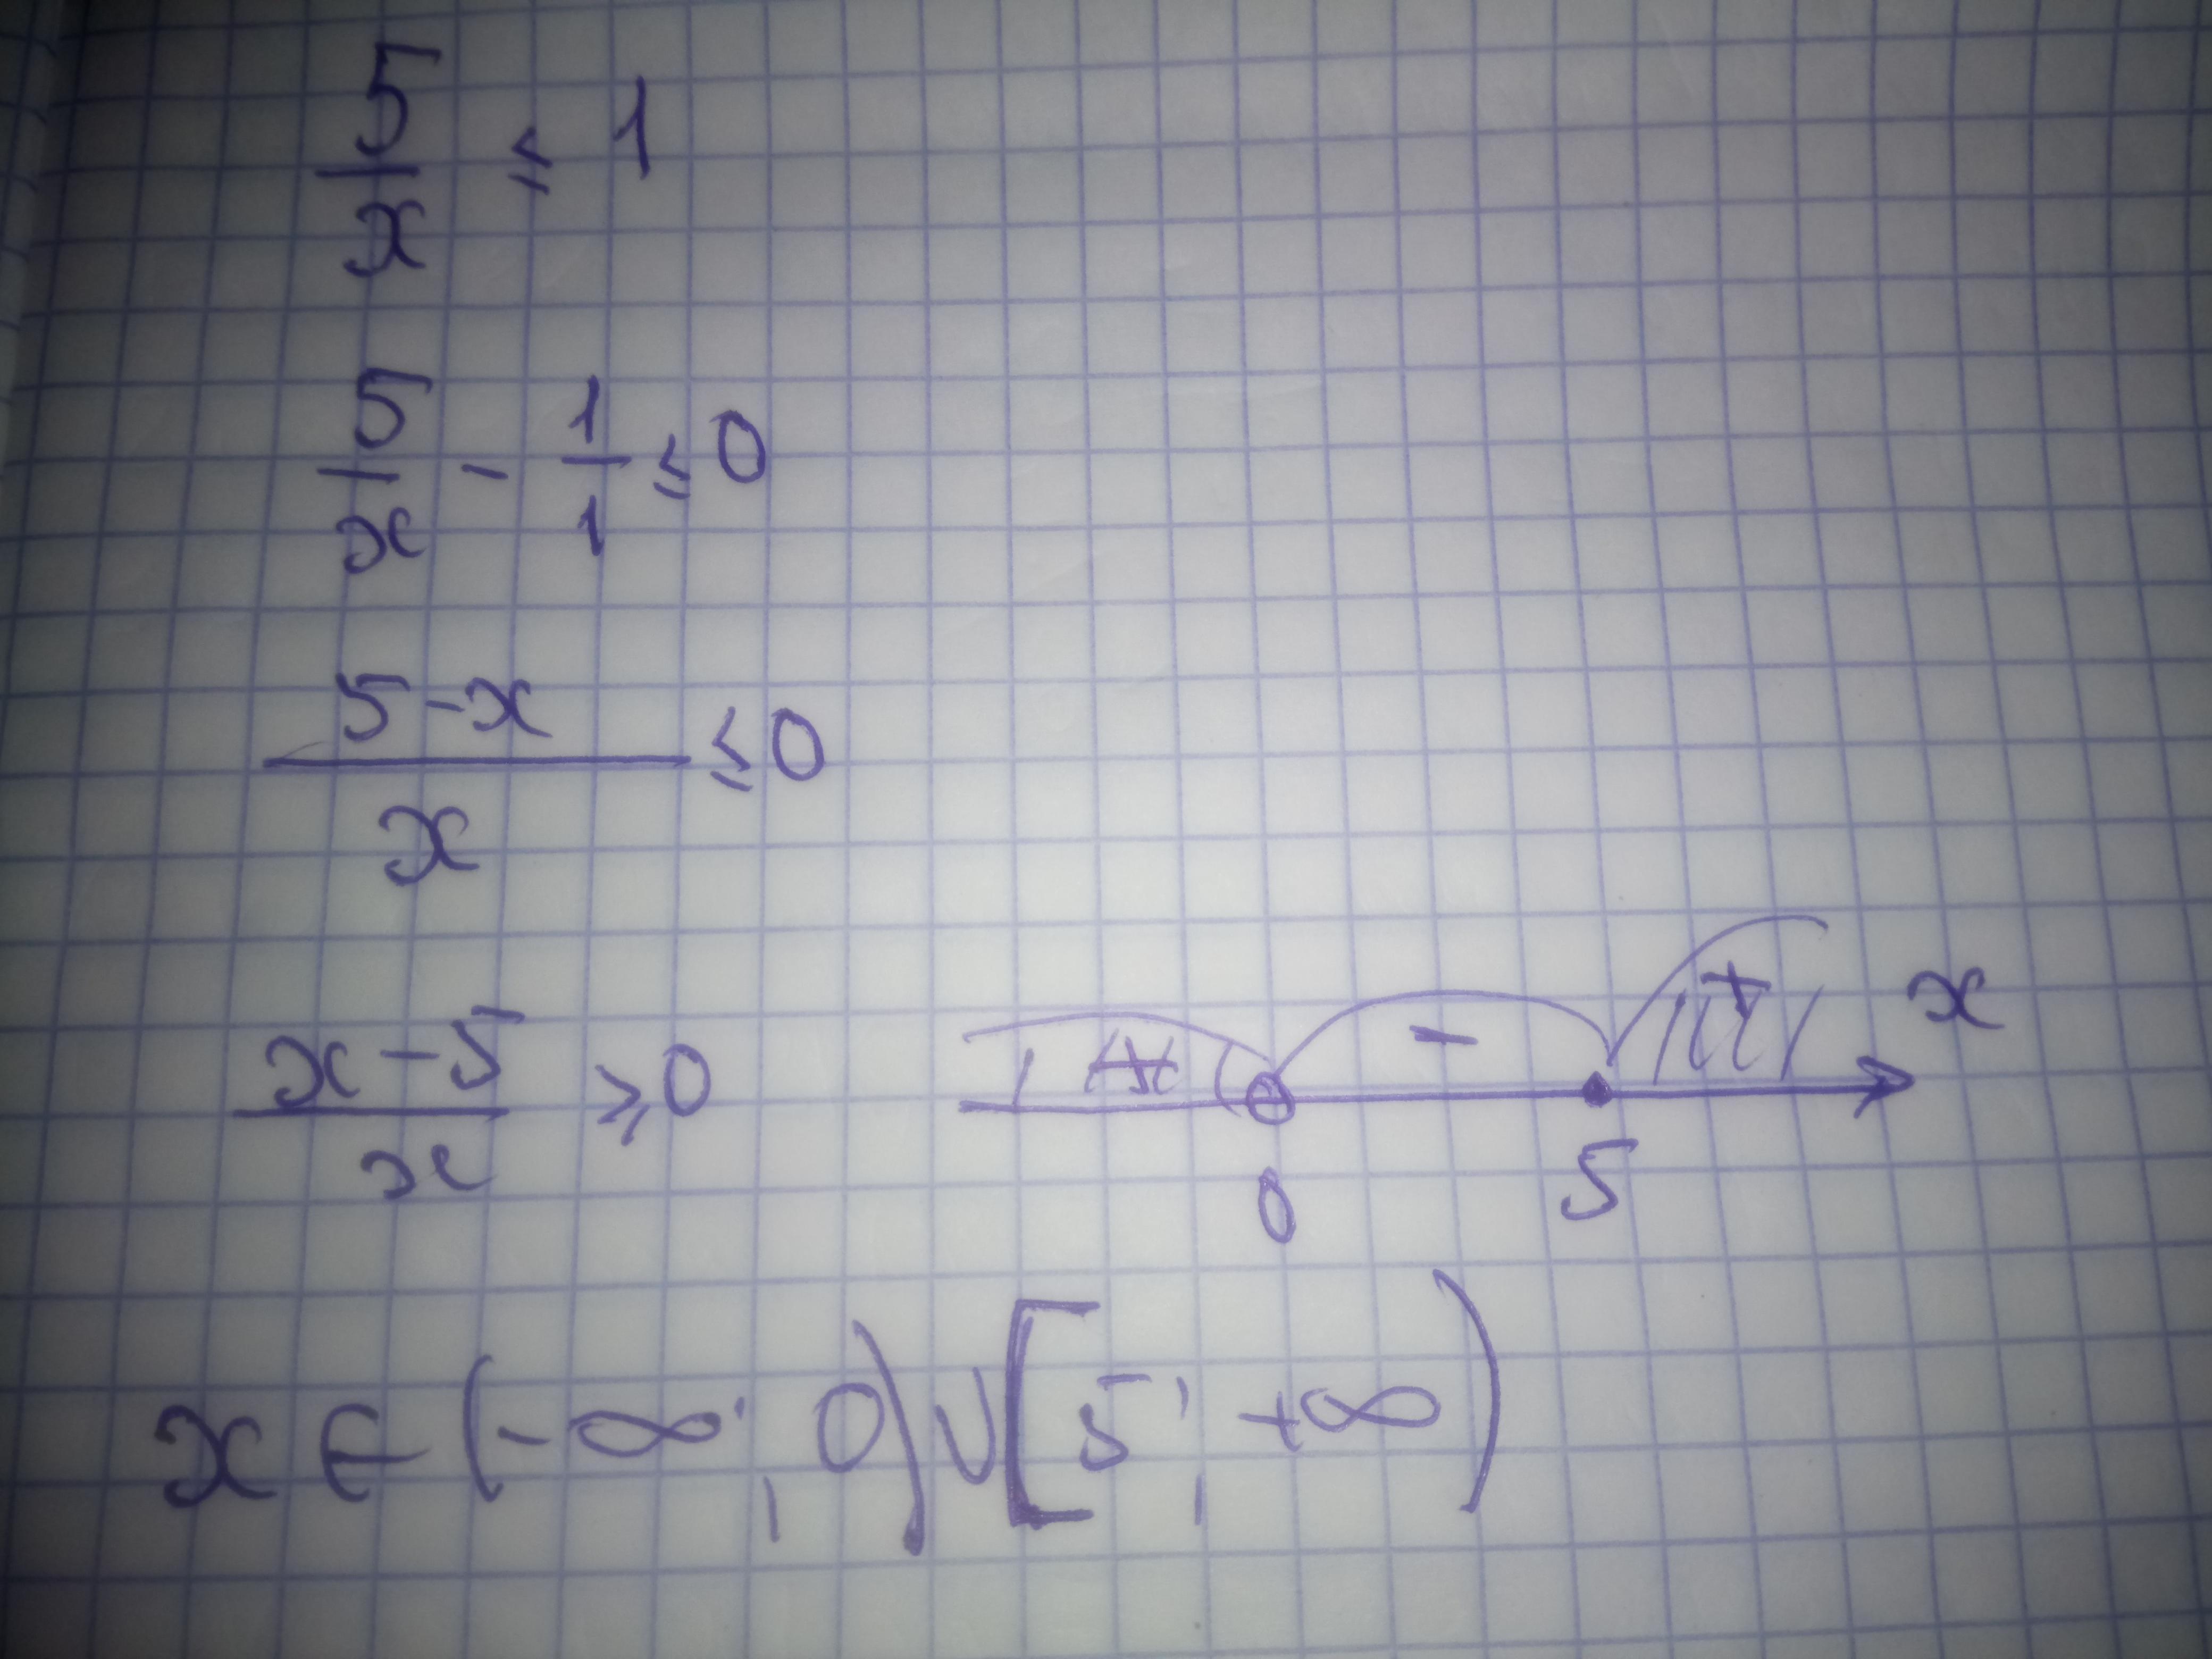 5/x ≤ 1
5/x - 1/1 ≤ 0
5-x/x ≤ 0
x-5/x ≥ 0
+ - + x
0 5
x ∈ (-∞; 0) ∪ [5; +∞)